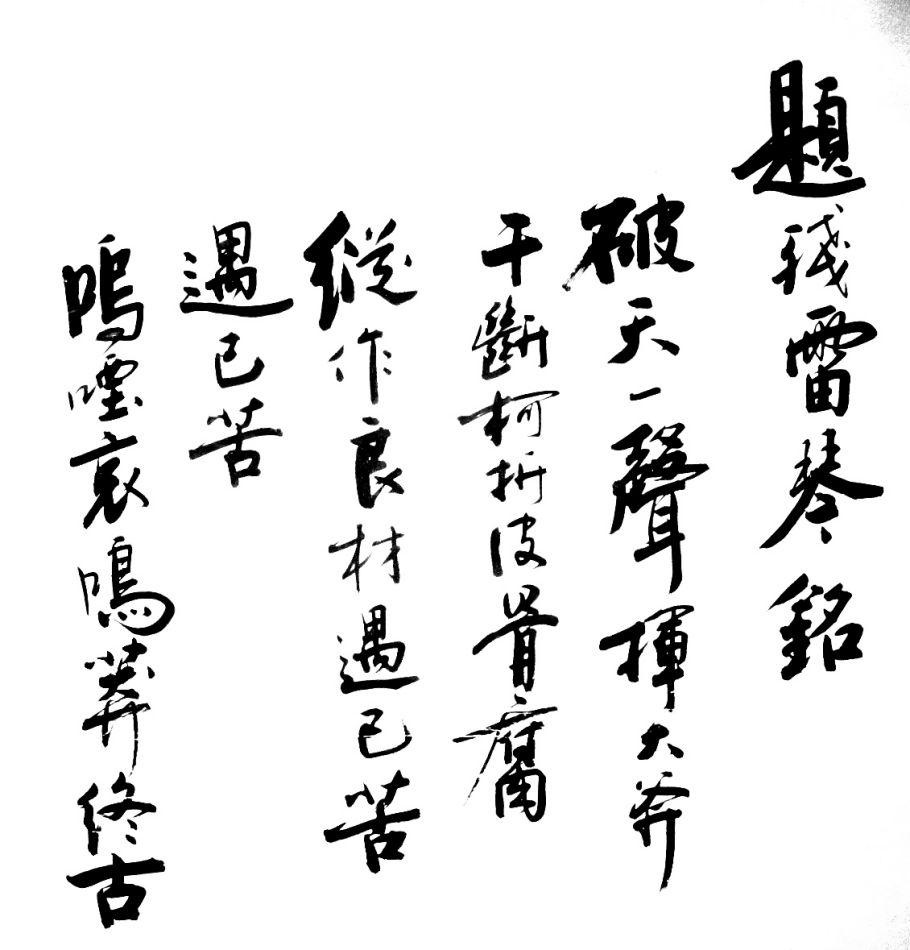 題殘雷琴銘
破天一聲揮大斧
干斷柯折皮骨腐
縱作良材遇已苦
遇已苦
嗚噫哀鳴莽終古